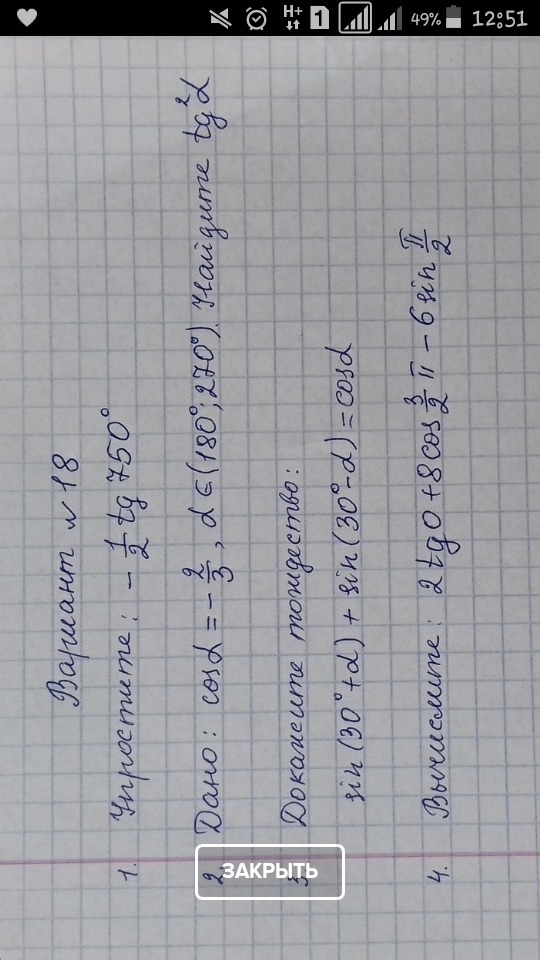 H+
1
49%
12:51
Вариант №18
1. Упростите: -1/2 tg 750°
2. Дано: cosα = -2/3, α∈(180°; 270°). Найдите tg²α
3. Докажите тождество:
sin(30°+α) + sin(30°-α) = cosα
4. Вычислите: 2 tg 0 + 8 cos 3/2 π - 6 sin π/2
ЗАКРЫТЬ